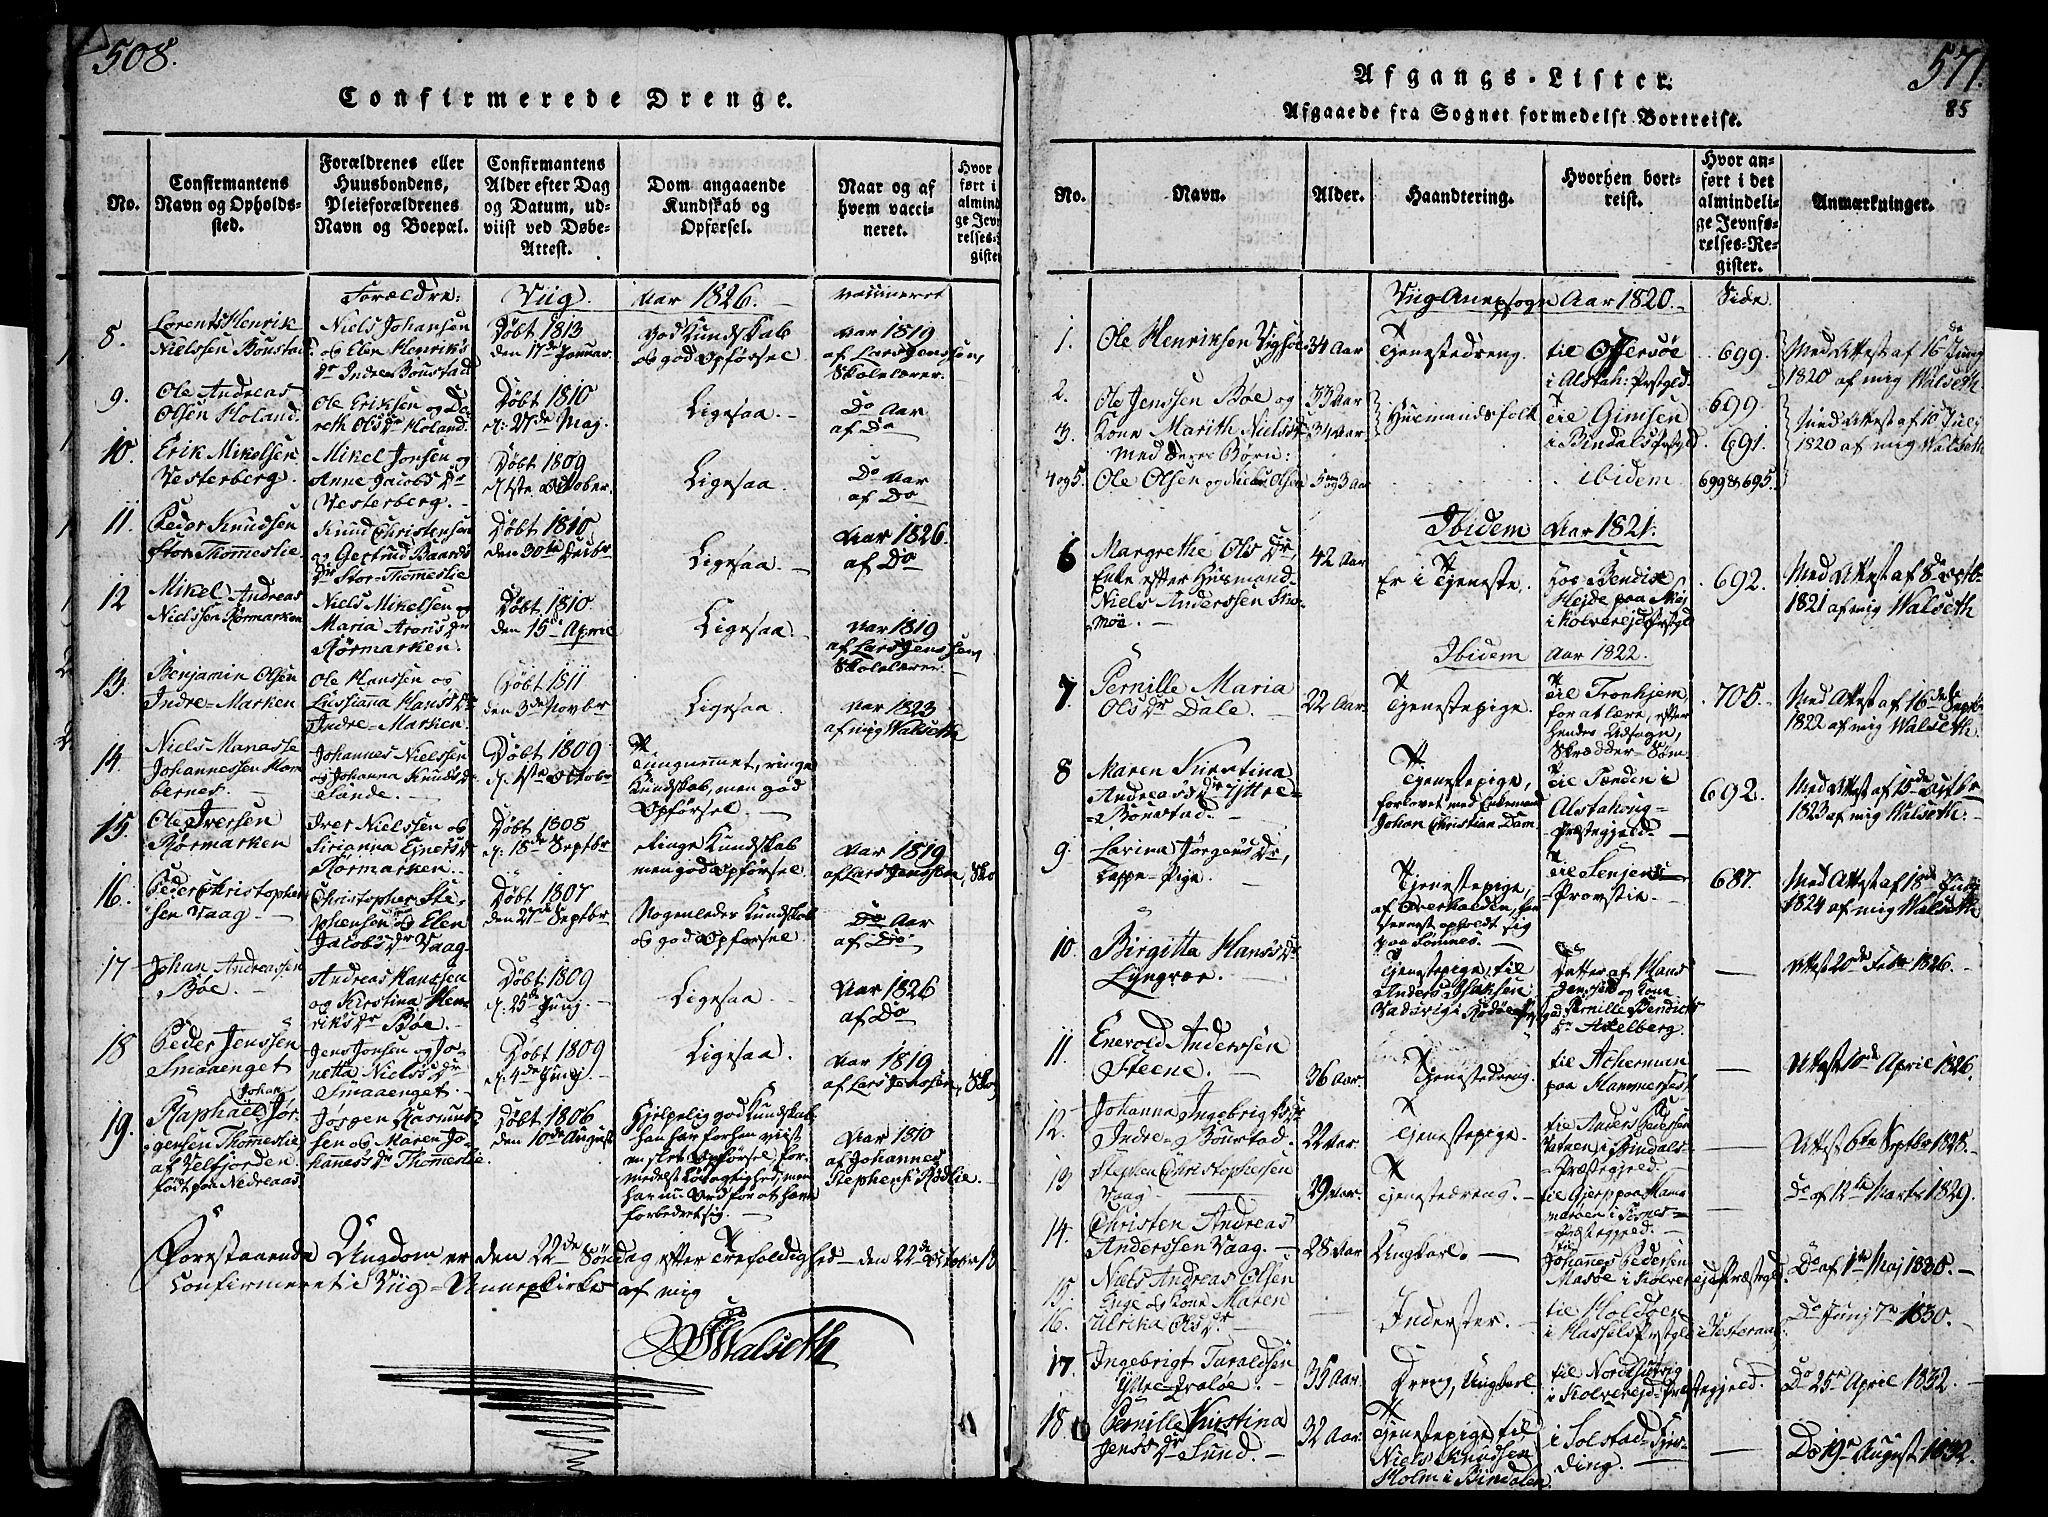 508.
Confirmerede Drenge.
No.
Confirmantens
Navn og Opholds-
sted.
Forældrenes eller
Huusbondens,
Pleieforældrenes
Navn og Boepæl.
Confirmantens
Alder efter Dag
og Datum, ud-
viist ved Døbe-
Attest.
Dom angaaende
Kundskab og
Opførsel.
Naar og af
hvem vacci-
neret.
Hvor
ført i
almind
ge Jevn
relses-
gister
Forældre:
Viig.
Aar 1826.
vaccineret
8.
Lorents Henrik
Nielssen Boustad.
Niels Johansen
og Elen Henriks
dr Indre Boustad
Døbt 1813
den 17de Januar.
God Kundskab
og god Opførsel
Aar 1819
af Lars Jenssen,
Skolelærer.
9.
Ole Andreas
Olsen Holand.
Ole Eriksen og Be-
reth Olsdr Holand.
Døbt 1810
d: 27de Maj.
Ligesaa.
Do Aar
af Do
10.
Erik Mikelsen
Vesterberg.
Mikel Jonsen og
Anne Jacobsdr
Vesterberg.
Døbt 1809
d. 1ste October.
Ligesaa.
Do Aar
af Do
11.
Peder Knudsen
Stor-Thomeslie.
Knud Christensen
og Gertrud Baards
dr Stor-Thomeslie
Døbt 1810
den 30te Decbr
Ligesaa.
Aar 1826
af Do
12
Mikel Andreas
Nielssen Rørmarken
Niels Mikelsen og
Maria Aronsdr
Rørmarken.
Døbt 1810
den 15de April
Ligesaa.
Aar 1819
af Lars Jenssen
Skolelærer
13.
Benjamin Olsen
Indre-Marken
Ole Hanssen og
Lussianna Hansdr
Indre-Marken.
Døbt 1811
den 3de Novbr
Ligesaa.
Aar 1823
af mig Walseth
14.
Niels Manasse
Johannessen Horn
bernes.
Johannes Nielssen
og Johanna Knudsdr
Sande.
Døbt 1809
d. 1ste Octobr
Tungnemmet, ringe
Kundskab, men god
Opførsel
15.
Ole Iversen
Rørmarken
Iver Nielssen og
Sirianna Ejnersdr
Rørmarken.
Døbt 1808
d: 18de Septbr
Ringe Kundskab
men god Opførsel
Aar 1819
af Lars Jenssen, Sko
16.
Peder Christophers
sen Vaag
Christopher Ste-
phensen og Elen
Jacobsdr Vaag
Døbt 1807
den 27de Septbr
Nogenledes Kundskab
og god Opførsel.
Do Aar
af Do
17
Johan Andreassen
Bøe.
Andreas Hanssen
og Kirstina Hen-
riksdr Bøe.
Døbt 1809
d. 25de Junj.
Ligesaa
Aar 1826
af Do
18
Peder Jenssen
Smaaenget
Jens Jonsen og Jo-
netta Nielsdr
Smaaenget.
Døbt 1809
d. 4de Junj.
Ligesaa.
Aar 1819
af Lars Jenssen, Sko
19.
Johan
Raphael Jør-
gensen Thomeslie
af Velfjorden
født paa Nedreaas
Jørgen Rasmus-
sen og Maren Jo-
hannesdr Thomeslie.
Døbt 1806
den 10de August
Hjelpelig god Kundskab
han har forhen viist
en slet Opførsel, for-
medelst Løsagtighed, men
har nu Ord for at have
forbedret sig.
Aar 1810
af Johannes
Stephens: Rødlie.
Forestaaende Ungdom er den 22de Søndag efter Trefoldighed den 22de October 18
Confirmeret i Viig-Annexkirke af mig
Walseth
571.
85
Afgangs-Lister.
Afgaaede fra Sognet formedelst Bortreise.
No.
Navn.
Alder.
Haandtering.
Hvorhen bort-
reist.
Hvor an-
ført i det
almindeli-
ge Jevnfø-
relses-Re-
gister.
Anmærkninger.
Viig Anexsogn Aar 1820.
Side.
1.
Ole Henriksen Vigsøe
34 Aar
Tjenestedreng.
til Offersøe
i Alstah: Prstgld
699.
Med Attest af 16de Junj
1820 af mig Walseth
2.
Ole Jenssen Bøe og
33 Aar
Huusmandsfolk
til Gimsen
i Bindals Prstgld
699.
Med Attest af 10de Julj
1820 af mig Walseth
3.
Kone Marith Nielsdr
34 Aar
691.
med deres Børn:
4 og 5.
Ole Olsen og Niels Olsen
5 og 3 Aar
ibidem
699 & 695.
Ibidem Aar 1821.
6
Margrethe Olsdr,
Enke efter Husmand
Niels Anderssen Sno-
møe.
42 Aar
Er i Tjeneste.
hos Bendix
Hejde paa
i Kolvereids Prstgld
692.
Med Attest af 8de Octb-
1821 af mig Walseth
Ibidem Aar 1822.
7.
Pernille Maria
Olsdr Dale.
22 Aar.
Tjenestepige.
til Tronhjem,
for at lære, efter
hendes Udsagn,
Skrædder-Søm
705.
Med Attest af 16de Septbr
1822 af mig Walseth.
8
Maren Kirstina
Andreasdr Yttre-
Bourstad.
Tjenestepige,
forlovet med Enkemand
Johan Christian Dam.
til Tenden i
Alstahoug-
Præstegjeld.
692.
Med Attest af 15de
1823 af mig Walseth.
9
Larina Jørgensdr,
Lappe-Pige.
Tjenestepige,
af Overhalden, har
senest opholdt sig
paa Sømnes.
til Senjens
Provstie.
687.
Med Attest af 18de Junj
1824 af mig Walseth
10
Birgitta Hansdr
Lyngvær.
Tjenestepige, til
Anders Isaksen
i Rødøe Prstgd
Datter af Hans
Jenssen og Kone
Pernille Bendicts
dr Axelberg.
Attest 20de Febr 1826.
11.
Enevold Anderssen
Steene.
36 Aar.
Tjenestedreng.
til Acherman
paa Hammernes.
Attest 10de April 1826.
12.
Johanna Ingebrigtsdr
Indre Bourstad.
22 Aar.
Tjenestepige.
til Anders Pedersen
i Bindals-
Præstegjeld.
Attest 6te Septbr 1828.
13
Stephen Christophersen
Vaag
29 Aar.
Tjenestedreng.
til Gjerp paa Ham-
marøen i
Præstegjeld.
Do af 12te Marts 1829.
14.
Christen Andreas
Anderssen Vaag.
28 Aar
Ungkarl.
til
Johannes Pedersen
Masøe i Kolverejds Præstegjeld.
Do af 1ste Maj 1830.
15.
Niels Andreas Olsen
16.
Enge og Kone Maren
Ulrika Olsdr
Inderster.
til Holdøen
i Hassels Prstgld i Vesteraalen
Do Junj 7de 1830.
17.
Ingebrigt Taraldsen
35 Aar.
Dreng, Ungkarl
til
i Kolverejd-Præstegjeld.
Do 25de April 1832.
18.
Pernille Kirstina
Jensdr Sund.
32 Aar.
Tjenestepige til
Niels Knudsen
Holm i Bindalen
i Solstad-Fjer-
ding.
Do 19de August 1832.